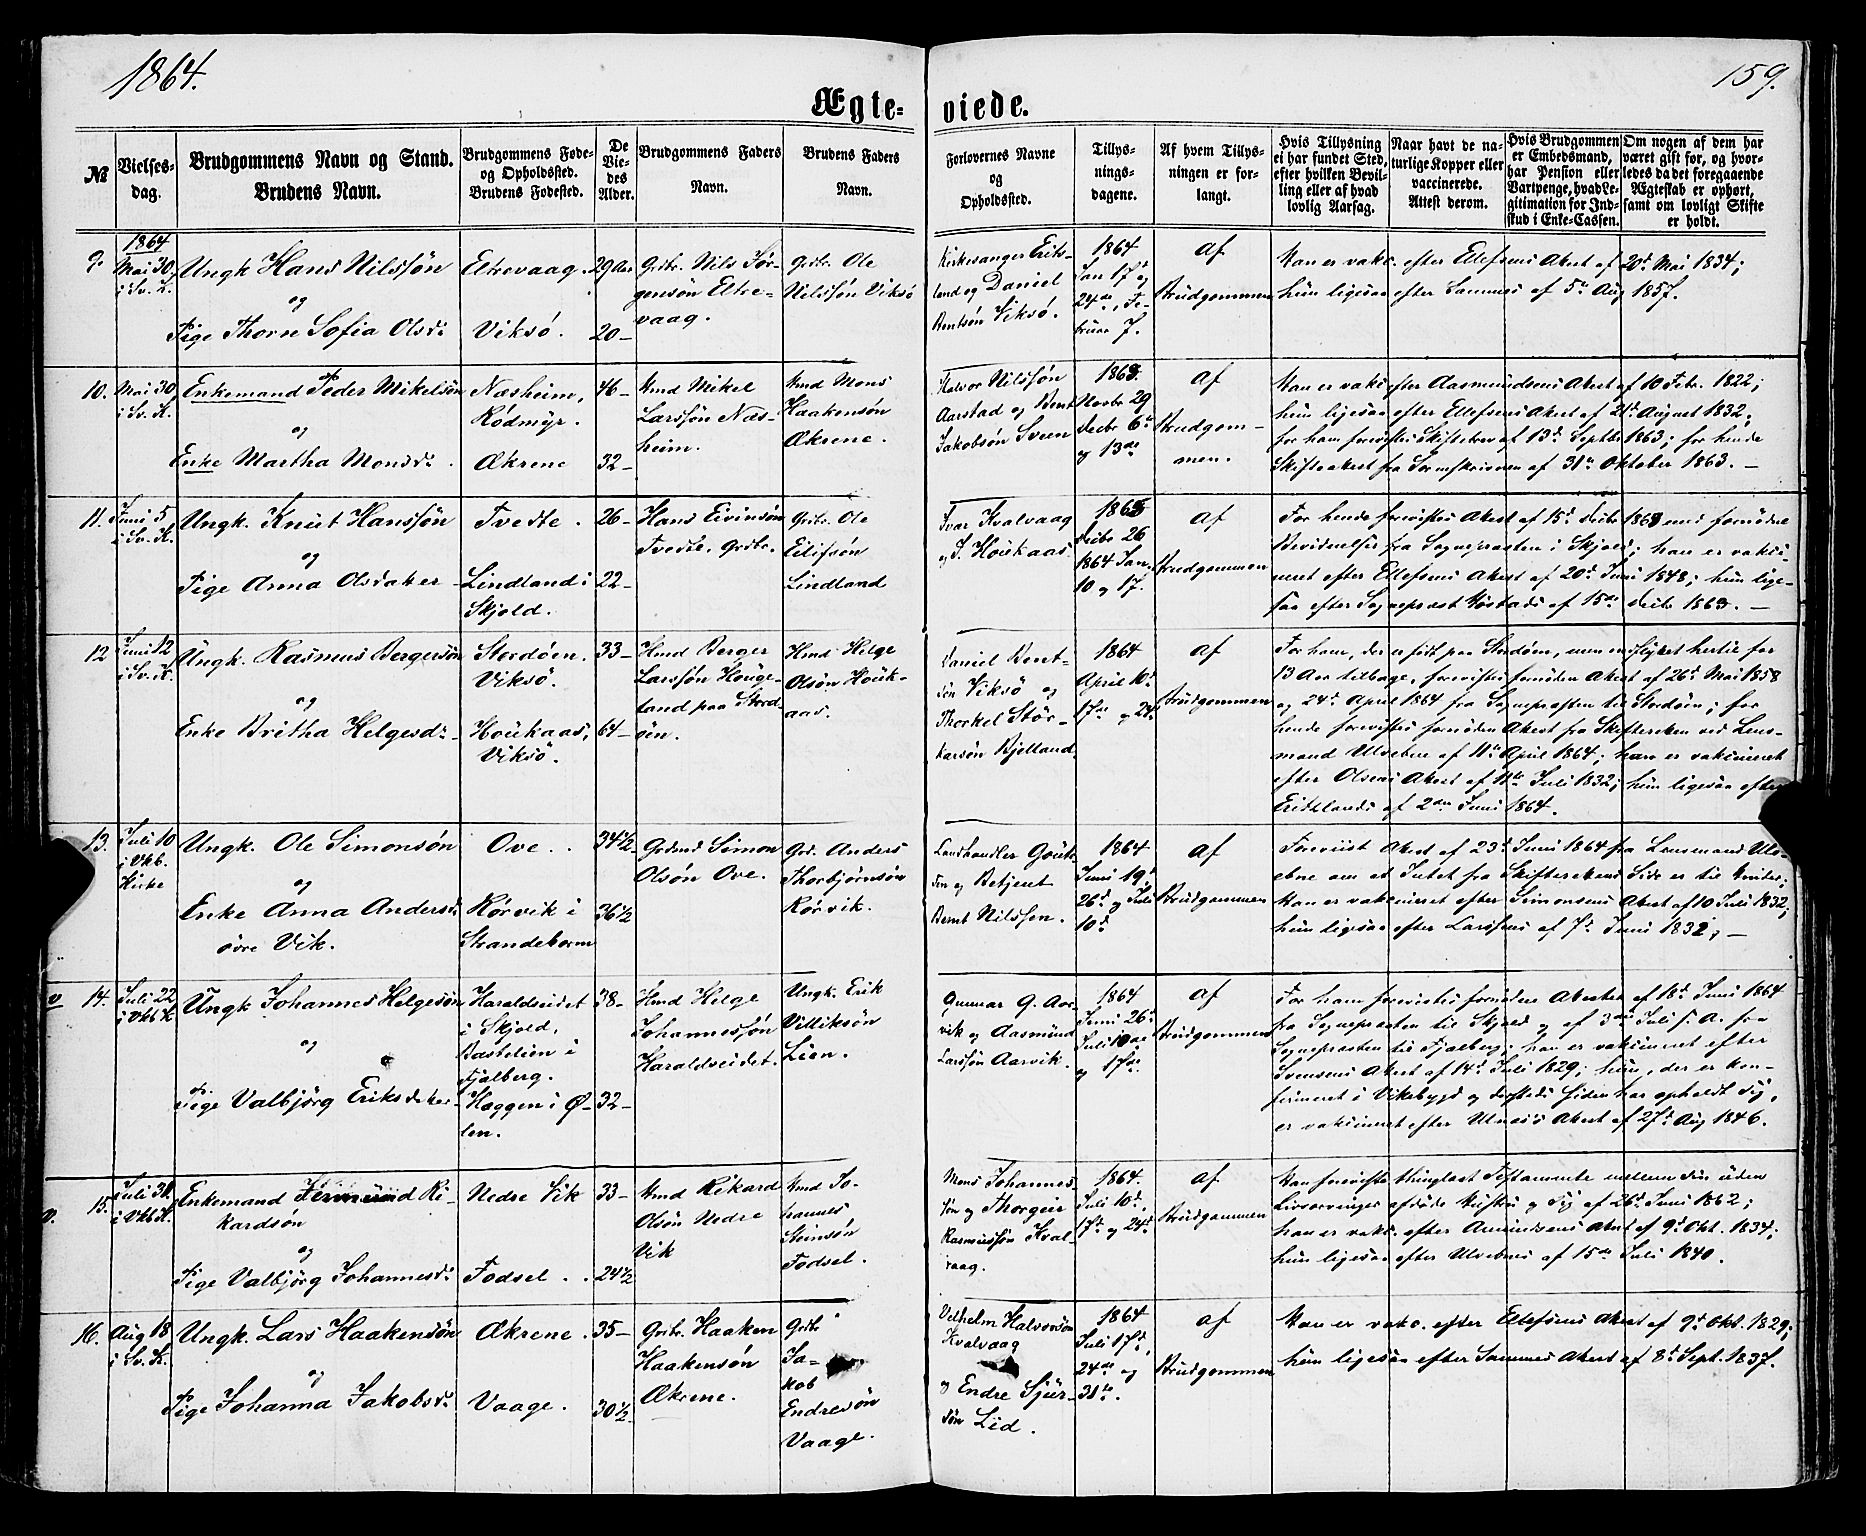 1864.
159.
Ægte=
viede.
№
Vielses-
dag.
Brudgommens Navn og Stand.
Brudens Navn.
Brudgommens Føde-
og Opholdssted.
Brudens Fødested.
De
Vie-
des
Alder.
Brudgommens Faders
Navn.
Brudens Faders
Navn.
Forlovernes Navne
og
Opholdssted.
Tillys-
nings-
dagene.
Af hvem Tillys-
ningen er for-
langt.
Hvis Tillysning
ei har fundet Sted,
efter hvilken Bevil-
ling eller af hvad
lovlig Aarsag.
Naar havt de na-
turlige Kopper eller
vaccinerede.
Attest derom.
Hvis Brudgommen
er Embedsmand,
har Pension eller
Vartpenge, hvad Le-
gitimation for Ind-
skud i Enke-Cassen.
Om nogen af dem har
været gift før, og hvor-
ledes da det foregaaende
Ægteskab er ophørt,
samt om lovligt Skifte
er holdt.
9.
1864
Mai 30,
i Sv. K.
Ungk. Hans Nilssön
og
Pige Thorne Sofia Olsd:
Eltrevaag.
Viksö.
29 Aar
20-
Grdbr. Nils Jör-
gensön Eltre-
vaag.
Grdbr. Ole
Nilssön Viksö
Kirkesanger Erits-
land og Daniel
Bentsön Viksö.
1864
Jan 17d og
24de, Fe-
bruar 7.
af
Brudgommen
Han er vakc. efter Ellefsens Attest af 20d Mai 1834;
hun ligesaa efter Sammes af 5te Aug 1857.
10.
Mai 30,
i Sv. K.
Enkemand Peder Mikelsön
og
Enke Martha Monsd:
Næsheim,
Rödmyr.
Ækrene
46-
32-
Hmd Mikel
Larssön Næs-
heim.
Hmd Mons
Haakensön
Ækrene.
Halvor Nilssön
Aarstad og Bent
Jakobsön Sveen
1863.
Novbr 29
Decbr 6te
og 13de
af
Brudgom-
men.
Han er vakc. efter Aasmundsens Attest af 10 Febr. 1822;
hun ligesaa efter Ellefsens Attest af 21d August 1832;
for ham forevistes Skiftebrev af 13d Septbr 1863; for hende
Skifteattest fra Sorenskriveren af 31te Oktober 1863. -
11.
Juni 5
i Sv. K.
Ungk. Knut Hanssön
og
Pige Anna Olsdaker
Tvedte.
Lindland i
Skjold.
26-
22-
Hans Eivinsön
Tvedte. Grdbr.
Grdbr. Ole
Eilifsön
Lindland
Ivar Kvalvaag
og S. Houkaas.
1863
Decbr 26
1864 Jan.
10 og 17.
af
Brudgommen
For hende forevistes Attest af 15d Decbr 1863 med fornödne
Bevidnelser fra Sognepræsten i Skjold; han er vakci-
neret efter Ellefsens Attest af 20d Juni 1848; hun lige-
saa efter Sognepræst Röstads af 15de Decbr 1863. -
12
Juni 12
i Sv. K.
Ungk. Rasmus Bergersön
og
Enke Britha Helgesd:
Stordöen.
Viksö.
Houkaas,
Viksö.
33-
64-
Hmd Berger
Larssön Houge-
land paa Stord-
öen.
Hmd. Helge
Olsön Houk-
aas.
Daniel Bent-
sön Viksö og
Thorkel Stör-
karsön Bjelland.
1864
April 10d
17de og 24d.
af
Brudgommen
For ham, der er födt paa Stordöen, men indflyttet hertil for
13 Aar tilbage, forevistes fornöden Attest af 26d Mai 1858
og 24d April 1864 fra Sognepræsten til Stordöen; for
hende forevistes fornöden Attest fra Skifteretten ved Lens-
mand Ulvebne af 11te April 1864; han er vakcineret
efter Olsens Attest af 11te Juli 1832; hun ligesaa efter
Eritslands af 2den Juni 1864.
13.
Juli 10
i Vkb.
Kirke
Ungk. Ole Simonsön
og
Enke Anna Andersd:
övre Vik.
Ove.
Rörvik i
Strandebarm
34½
36½
Grdmd Simon
Olsön Ove.
Grd. Anders
Thorbjörnsön
Rörvik.
Landhandler Gout-
sen og Betjent
Bernt Nilssen.
1864
Juni 19d
26d og Juli
10d
af
Brudgommen
Foreviist Attest af 23d Juni 1864 fra Lensmand Ulv-
ebne om at Intet fra Skifterettens Side er til Hinder;
han er vakcineret efter Simonsens Attest af 10 Juli 1832;
hun ligesaa efter Larssens af 7d Juni 1832; -
v
14.
Juli 22
i Vkb K
Ungk Johannes Helgesön
og
Pige Valbjörg Eriksdatter
Haraldseidet
i Skjold,
Bastelien i
Fjælberg.
Hæggen i Ø-
len.
38-
32-
Hmd Helge
Johannessön
Haraldseidet.
Ungk. Erik
Villiksön
Lien.
Gunnar G. Aar-
vik og Aasmund
Larssön Aarvik.
1864
Juni 26d
Juli 10de
og 17de.
af
Brudgommen
For ham forevistes fornödne Attester af 18d Juni 1864
fra Sognepræsten til Skjold og af 3die Juli s. A. fra
Sognepræsten til Fjælberg; han er vakcineret efter
Svensens Attest af 14d Juli 1829; hun, der er kon-
firmeret i Vikebygd og derstedi siden har opholdt sig,
er vakcineret efter Ulnæss Attest af 27d Aug 1846.
v.
15.
Juli 31
i Vkb K.
Enkemand Jermund Ri-
kardsön
og
Pige Valbjörg Johannesd:
Nedre Vik
Fodsel.
33-
24½
Hmd Rikard
Olsön Nedre
Vik
Hmd Jo-
hannes
Steinsön
Fodsel.
Mons Johannes-
sön og Thorgeir
Rasmussön Kval-
vaag.
1864.
Juli 10d,
17d og 24d.
af
Brudgommen
Han foreviste thinglæst Testamente mellem sin uden
Livsarvinger afdöde Hustru og sig af 26d Juni 1862;
han er vakc. efter Amundsens Attest af 9d Okt. 1834;
hun ligesaa efter Ulvebnes af 15de Juli 1840.
16.
Aug 18
i Sv. K.
Ungk. Lars Haakensön
og
Pige Johanna Jakobsd:
Ækrene.
Vaage.
35-
30½
Grdbr. Haaken
Haakensön
Ækrene.
Grdbr
Ja-
kob
Endresön
Vaage.
Vilhelm Halvorsön
Kvalvaag
og Endre Sjur-
sön Lid.
1864
Juli 17d,
24de og
31te.
af
Brudgommen
Han er vakc. efter Ellefsens Attest af 9d Okt. 1829;
hun ligesaa efter Sammes Attest af 8d Sept. 1837.